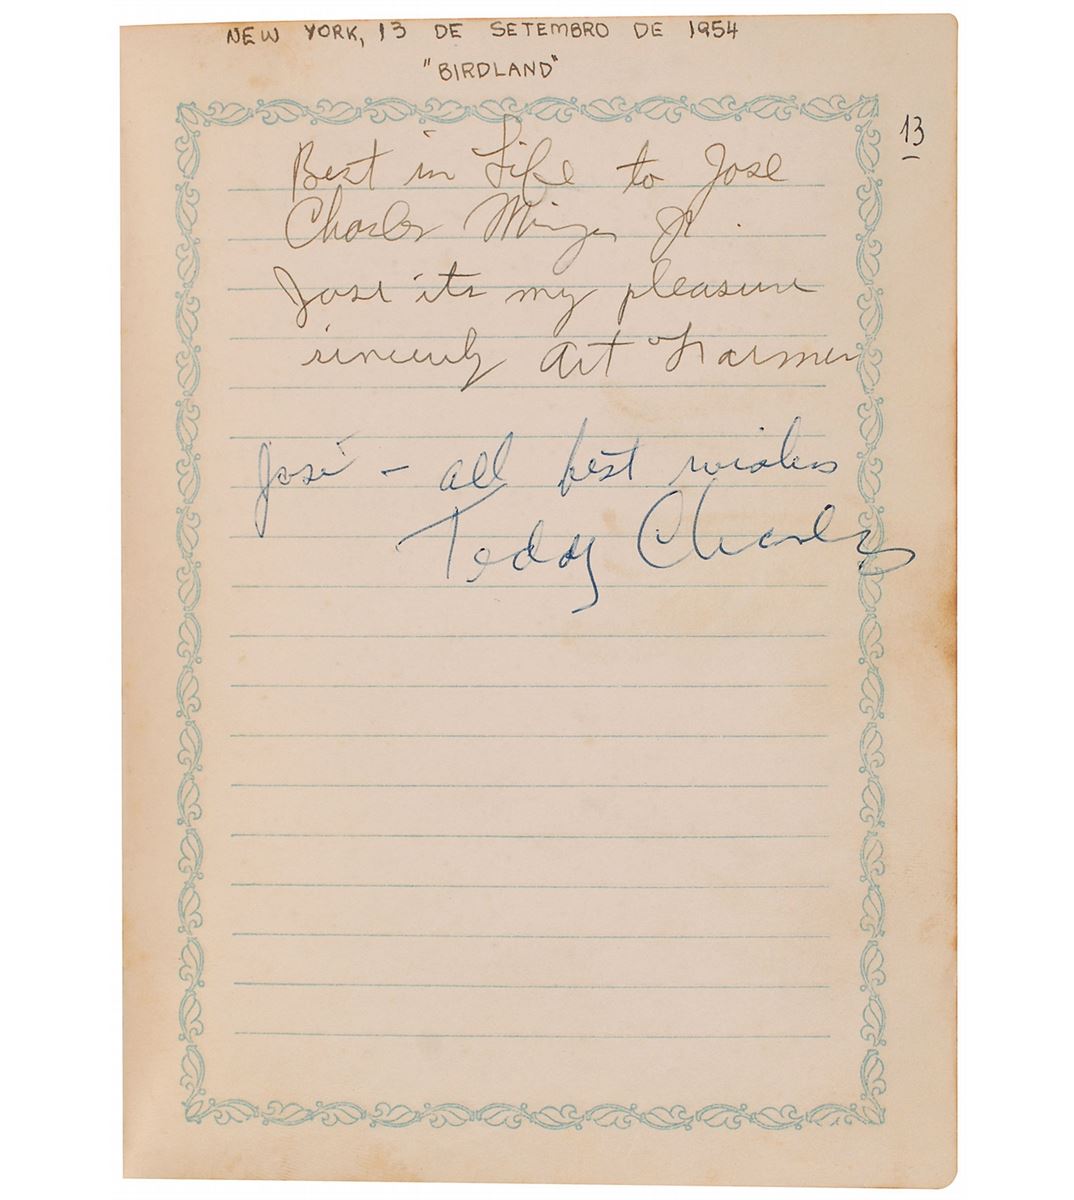 NEW YORK, 13 DE SETEMBRO DE 1954
"BIRDLAND"
13
Best in Life to Jose
Charles Mingus Jr.
Jose its my pleasure
sincerely Art Farmer
José - all best wishes
Teddy Charles